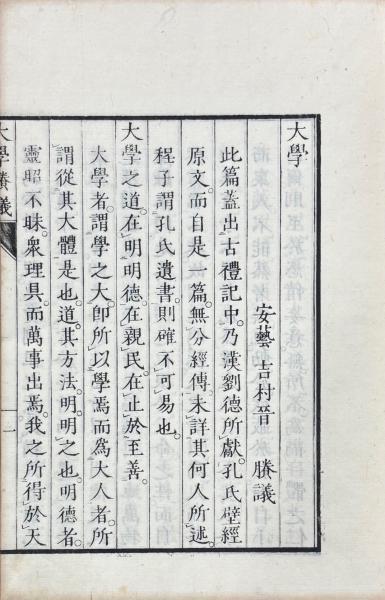 大學
安藝 吉村晉 騰議
此篇蓋出古禮記中。乃漢劉德所獻。孔氏壁經
原文。而自是一篇。無分經傳。未詳其何人所述。
程子謂孔氏遺書。則確不可易也。
大學之道。在明明德。在親民。在止於至善。
大學者。謂學之大。卽所以學焉而爲大人者。所
謂從其大體是也。道。其方法。明。明之也。明德者。
靈昭不昧。衆理具。而萬事出焉。我之所得於天
大學賸議
一